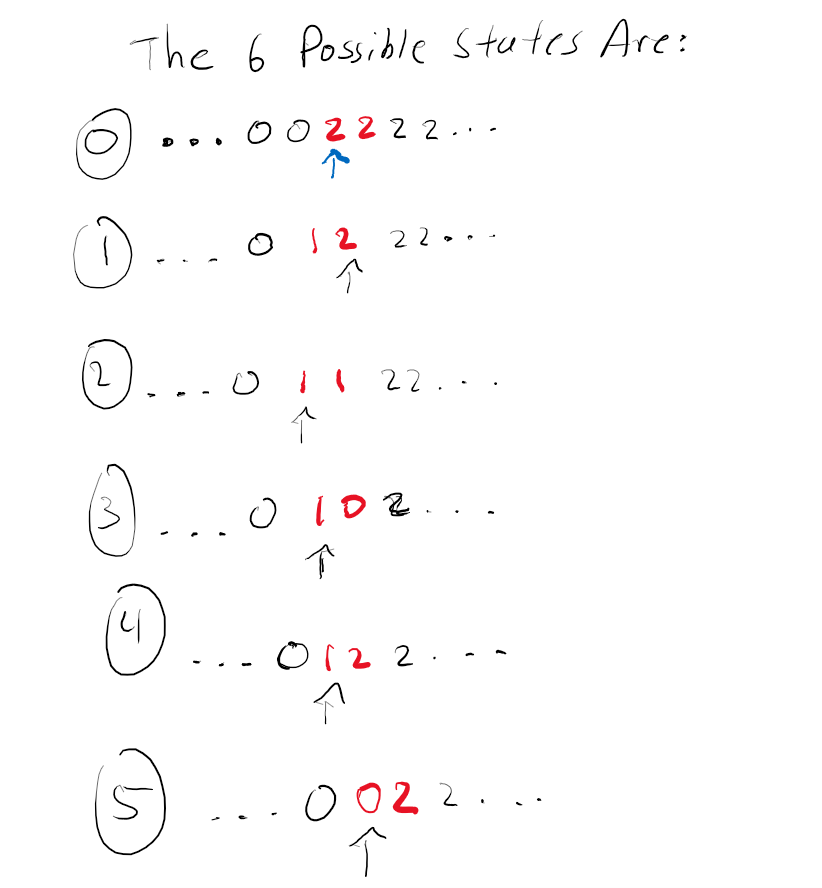 The 6 Possible States Are:
0 ... 0 0 2 2 2 2 ...
↑
1 ... 0 1 2 2 2 ...
↑
2 ... 0 1 1 2 2 ...
↑
3 ... 0 1 0 2 ...
↑
4 ... 0 1 2 2 ...
↑
5 ... 0 0 2 2 ...
↑